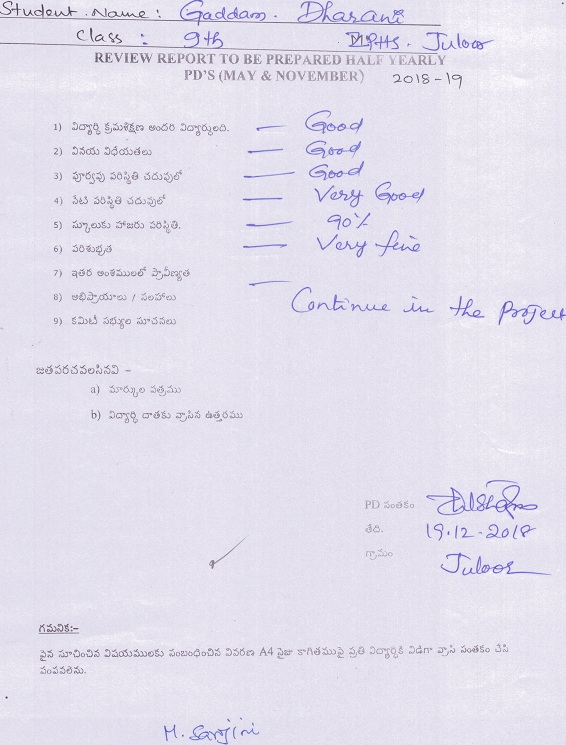 Student. Name: Gaddam. Dharani
Class: 9th ZPHS. Juloor
REVIEW REPORT TO BE PREPARED HALF YEARLY
PD'S (MAY & NOVEMBER) 2018-19
1) విద్యార్థి క్రమశిక్షణ అందరి విద్యార్థులది. — Good
2) వినయ విధేయతలు — Good
3) పూర్వపు పరిస్థితి చదువులో — Good
4) నేటి పరిస్థితి చదువులో — Very Good
5) స్కూలుకు హాజరు పరిస్థితి. — 90%
6) పరిశుభ్రత — Very fine
7) ఇతర అంశములలో ప్రావీణ్యత —
8) అభిప్రాయాలు / సలహాలు Continue in the Project
9) కమిటీ సభ్యుల సూచనలు
జతపరచవలసినవి –
a) మార్కుల పత్రము
b) విద్యార్థి దాతకు వ్రాసిన ఉత్తరము
PD సంతకం
తేది. 19.12-2018
గ్రామం Juloor
గమనిక:–
పైన సూచించిన విషయములకు సంబంధించిన వివరణ A4 సైజు కాగితముపై ప్రతి విద్యార్థికి విడిగా వ్రాసి సంతకం చేసి
పంపవలెను.
M. Sanjini